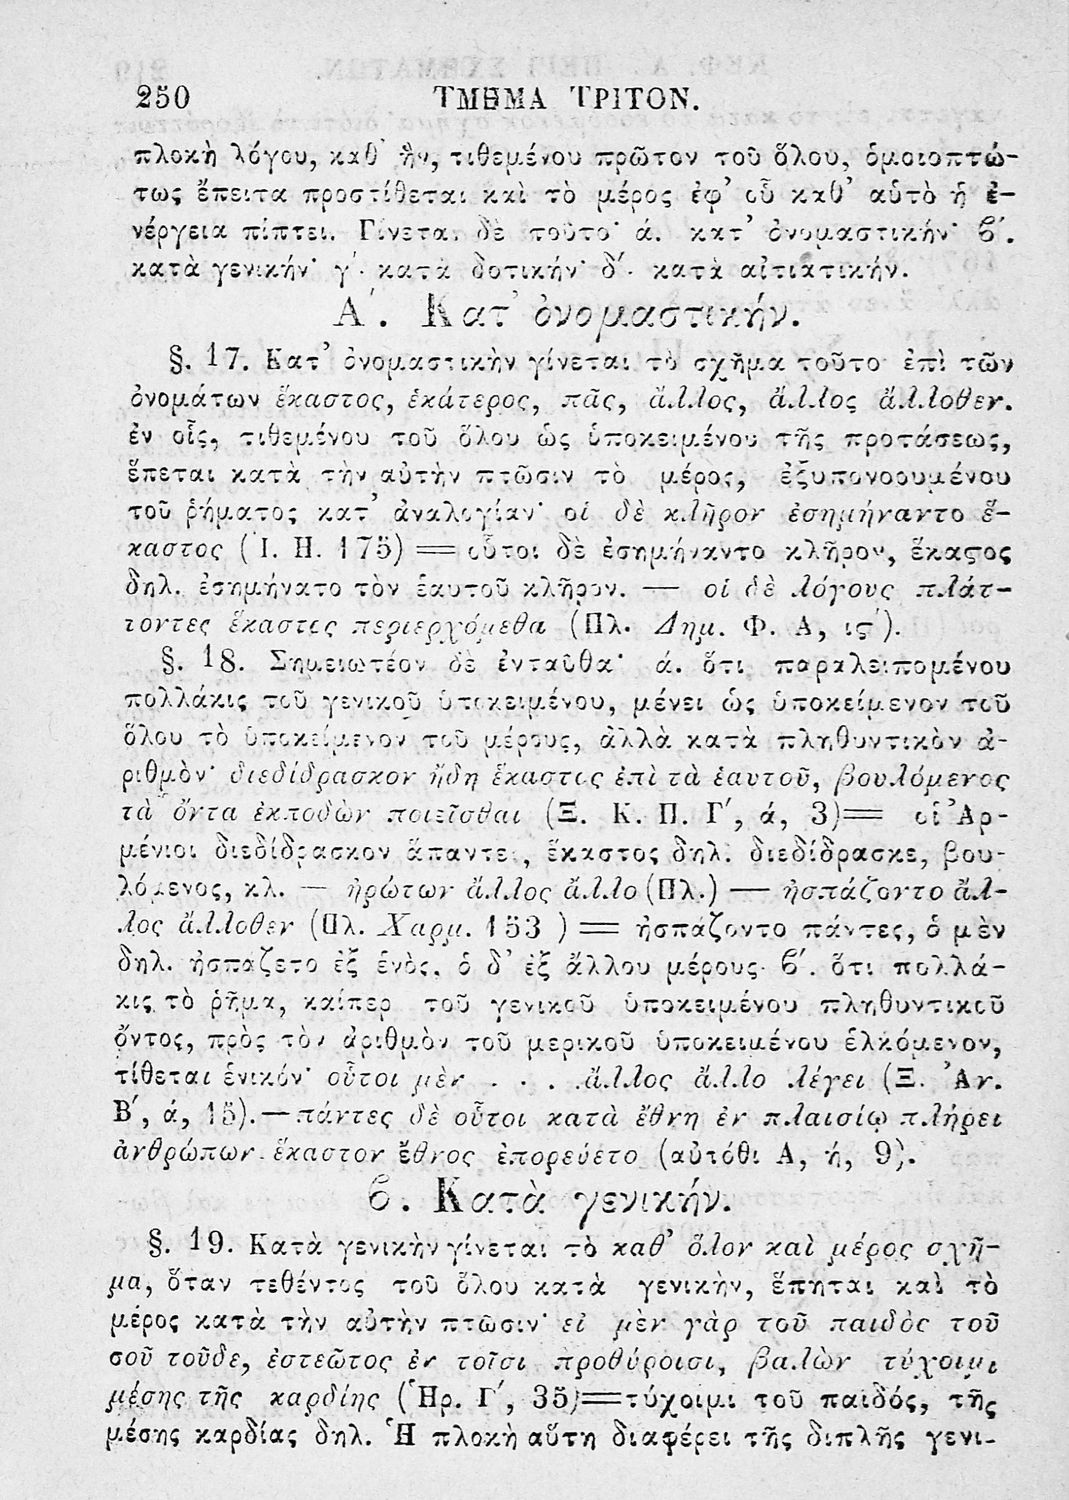 250 ΤΜΗΜΑ ΤΡΙΤΟΝ.
πλοκὴ λόγου, καθ' ἣν, τιθεμένου πρῶτον τοῦ ὅλου, ὁμοιοπτώ-
τως ἔπειτα προστίθεται καὶ τὸ μέρος ἐφ' οὗ καθ' αὑτὸ ἡ ἐ-
νέργεια πίπτει. Γίνεται δὲ τοῦτο· ά. κατ' ὀνομαστικήν· ϐ'.
κατὰ γενικήν· γ'. κατὰ δοτικήν· δ'. κατὰ αἰτιατικήν.
Α'. Κατ' ὀνομαστικήν.
§. 17. Κατ' ὀνομαστικὴν γίνεται τὸ σχῆμα τοῦτο ἐπὶ τῶν
ὀνομάτων ἕκαστος, ἑκάτερος, πᾶς, ἄλλος, ἄλλος ἄλλοθεν.
ἐν οἷς, τιθεμένου τοῦ ὅλου ὡς ὑποκειμένου τῆς προτάσεως,
ἕπεται κατὰ τὴν αὐτὴν πτῶσιν τὸ μέρος, ἐξυπονοουμένου
τοῦ ῥήματος κατ' ἀναλογίαν· οἱ δὲ κλῆρον ἐσημήναντο ἕ-
καστος (Ἰ. Η. 175) = οὗτοι δὲ ἐσημήναντο κλῆρον, ἕκαϛος
δηλ. ἐσημήνατο τὸν ἑαυτοῦ κλῆρον. — οἱ δὲ λόγους πλάτ-
τοντες ἕκαστος περιερχόμεθα (Πλ. Δημ. Φ. Α, ιϛ').
§. 18. Σημειωτέον δὲ ἐνταῦθα· ά. ὅτι παραλειπομένου
πολλάκις τοῦ γενικοῦ ὑποκειμένου, μένει ὡς ὑποκείμενον τοῦ
ὅλου τὸ ὑποκείμενον τοῦ μέρους, ἀλλὰ κατὰ πληθυντικὸν ἀ-
ριθμὸν· διεδίδρασκον ἤδη ἕκαστος ἐπὶ τὰ ἑαυτοῦ, βουλόμενος
τὰ ὄντα ἐκποδὼν ποιεῖσθαι (Ξ. Κ. Π. Γ', ά, 3)= οἱ Ἀρ-
μένιοι διεδίδρασκον ἅπαντες, ἕκαστος δηλ. διεδίδρασκε, βου-
λόμενος, κλ. — ἠρώτων ἄλλος ἄλλο (Πλ.) — ἠσπάζοντο ἄλ-
λος ἄλλοθεν (Πλ. Χαρμ. 153 ) = ἠσπάζοντο πάντες, ὁ μὲν
δηλ. ἠσπάζετο ἐξ ἑνὸς, ὁ δ' ἐξ ἄλλου μέρους· ϐ'. ὅτι πολλά-
κις τὸ ῥῆμα, καίπερ τοῦ γενικοῦ ὑποκειμένου πληθυντικοῦ
ὄντος, πρὸς τὸν ἀριθμὸν τοῦ μερικοῦ ὑποκειμένου ἑλκόμενον,
τίθεται ἑνικόν· οὗτοι μὲν . . . .ἄλλος ἄλλο λέγει (Ξ. Ἀν.
Β', ά, 15).—πάντες δὲ οὗτοι κατὰ ἔθνη ἐν πλαισίῳ πλήρει
ἀνθρώπων. ἕκαστον ἔθνος ἐπορεύετο (αὐτόθι Α, ή, 9).
ϐ. Κατὰ γενικήν.
§. 19. Κατὰ γενικὴν γίνεται τὸ καθ' ὅλον καὶ μέρος σχῆ-
μα, ὅταν τεθέντος τοῦ ὅλου κατὰ γενικὴν, ἕπηται καὶ τὸ
μέρος κατὰ τὴν αὐτὴν πτῶσιν· εἰ μὲν γὰρ τοῦ παιδὸς τοῦ
σοῦ τοῦδε, ἑστεῶτος ἐν τοῖσι προθύροισι, βαλὼν τύχοιμι
μέσης τῆς καρδίης (Ἡρ. Γ', 35)=τύχοιμι τοῦ παιδός, τῆς
μέσης καρδίας δηλ. Ἡ πλοκὴ αὕτη διαφέρει τῆς διπλῆς γενι-